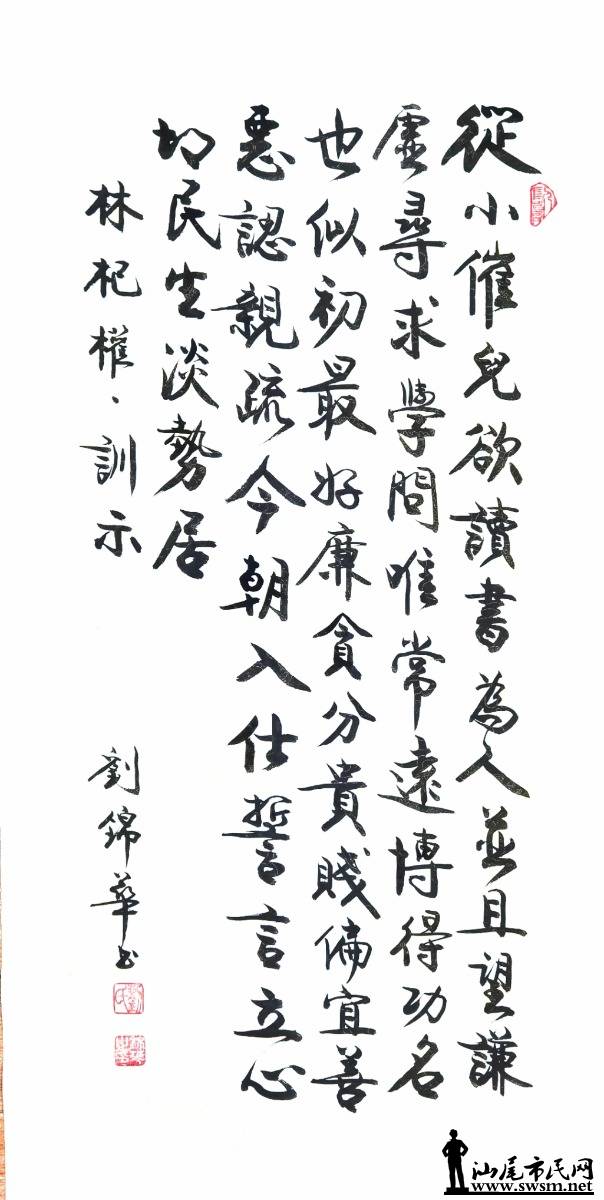 從小催兒欲讀書為人並且望謙
虛尋求學問唯常遠博得功名
也似初最好廉貪分貴賤偏宜善
惡認親疏今朝入仕誓言言立心
切民生淡勢居
林杞權、訓示
劉錦華书
汕尾市民网
www.swsm.net